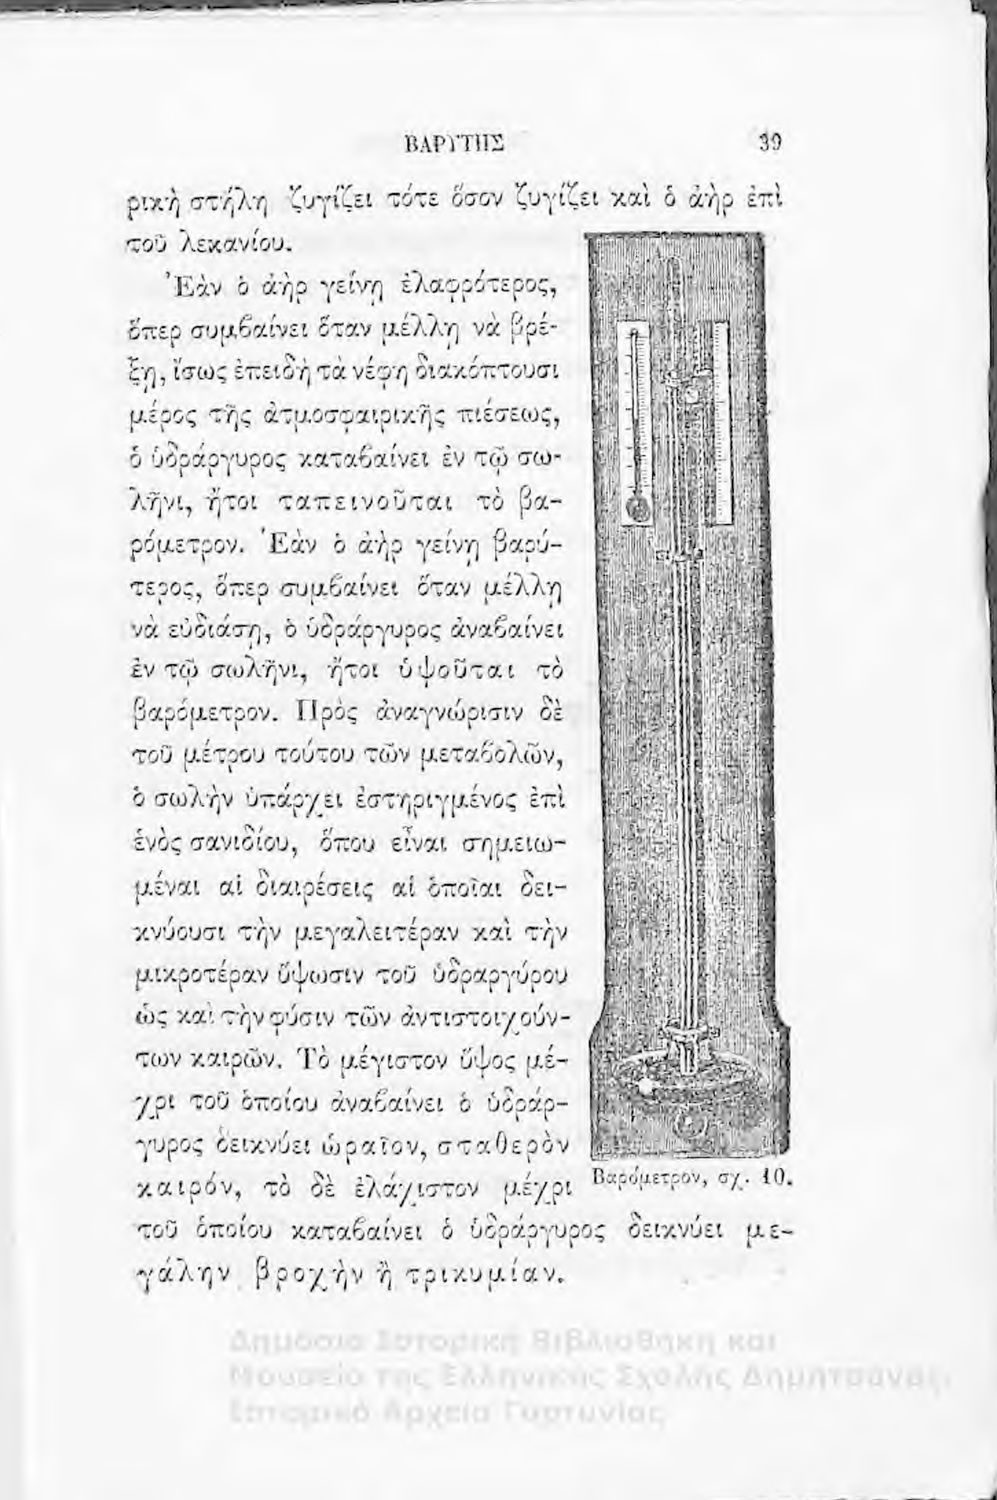 ΒΑΡΥΤΗΣ 39
ρικὴ στήλη ζυγίζει τότε ὅσον ζυγίζει καὶ ὁ ἀὴρ ἐπὶ
τοῦ λεκανίου.
Ἐὰν ὁ ἀὴρ γείνῃ ἐλαφρότερος,
ὅπερ συμβαίνει ὅταν μέλλῃ νὰ βρέ-
ξῃ, ἴσως ἐπειδὴ τὰ νέφη διακόπτουσι
μέρος τῆς ἀτμοσφαιρικῆς πιέσεως,
ὁ ὑδράργυρος καταβαίνει ἐν τῷ σω-
λῆνι, ἤτοι ταπεινοῦται τὸ βα-
ρόμετρον. Ἐὰν ὁ ἀὴρ γείνῃ βαρύ-
τερος, ὅπερ συμβαίνει ὅταν μέλλῃ
νὰ εὐδιάσῃ, ὁ ὑδράργυρος ἀναβαίνει
ἐν τῷ σωλῆνι, ἤτοι ὑψοῦται τὸ
βαρόμετρον. Πρὸς ἀναγνώρισιν δὲ
τοῦ μέτρου τούτου τῶν μεταβολῶν,
ὁ σωλὴν ὑπάρχει ἐστηριγμένος ἐπὶ
ἑνὸς σανιδίου, ὅπου εἶναι σημειω-
μέναι αἱ διαιρέσεις αἱ ὁποῖαι δει-
κνύουσι τὴν μεγαλειτέραν καὶ τὴν
μικροτέραν ὕψωσιν τοῦ ὑδραργύρου
ὡς καὶ τὴν φύσιν τῶν ἀντιστοιχούν-
των καιρῶν. Τὸ μέγιστον ὕψος μέ-
χρι τοῦ ὁποίου ἀναβαίνει ὁ ὑδράρ-
γυρος δεικνύει ὡραῖον, σταθερὸν
καιρόν, τὸ δὲ ἐλάχιστον μέχρι
τοῦ ὁποίου καταβαίνει ὁ ὑδράργυρος δεικνύει με-
γάλην βροχὴν ἢ τρικυμίαν.
Βαρόμετρον, σχ. 10.
Δημόσια Ιστορική Βιβλιοθήκη και
Μουσείο της Ελληνικής Σχολής Δημητσάνας,
Ιστορικό Αρχείο Γορτυνίας